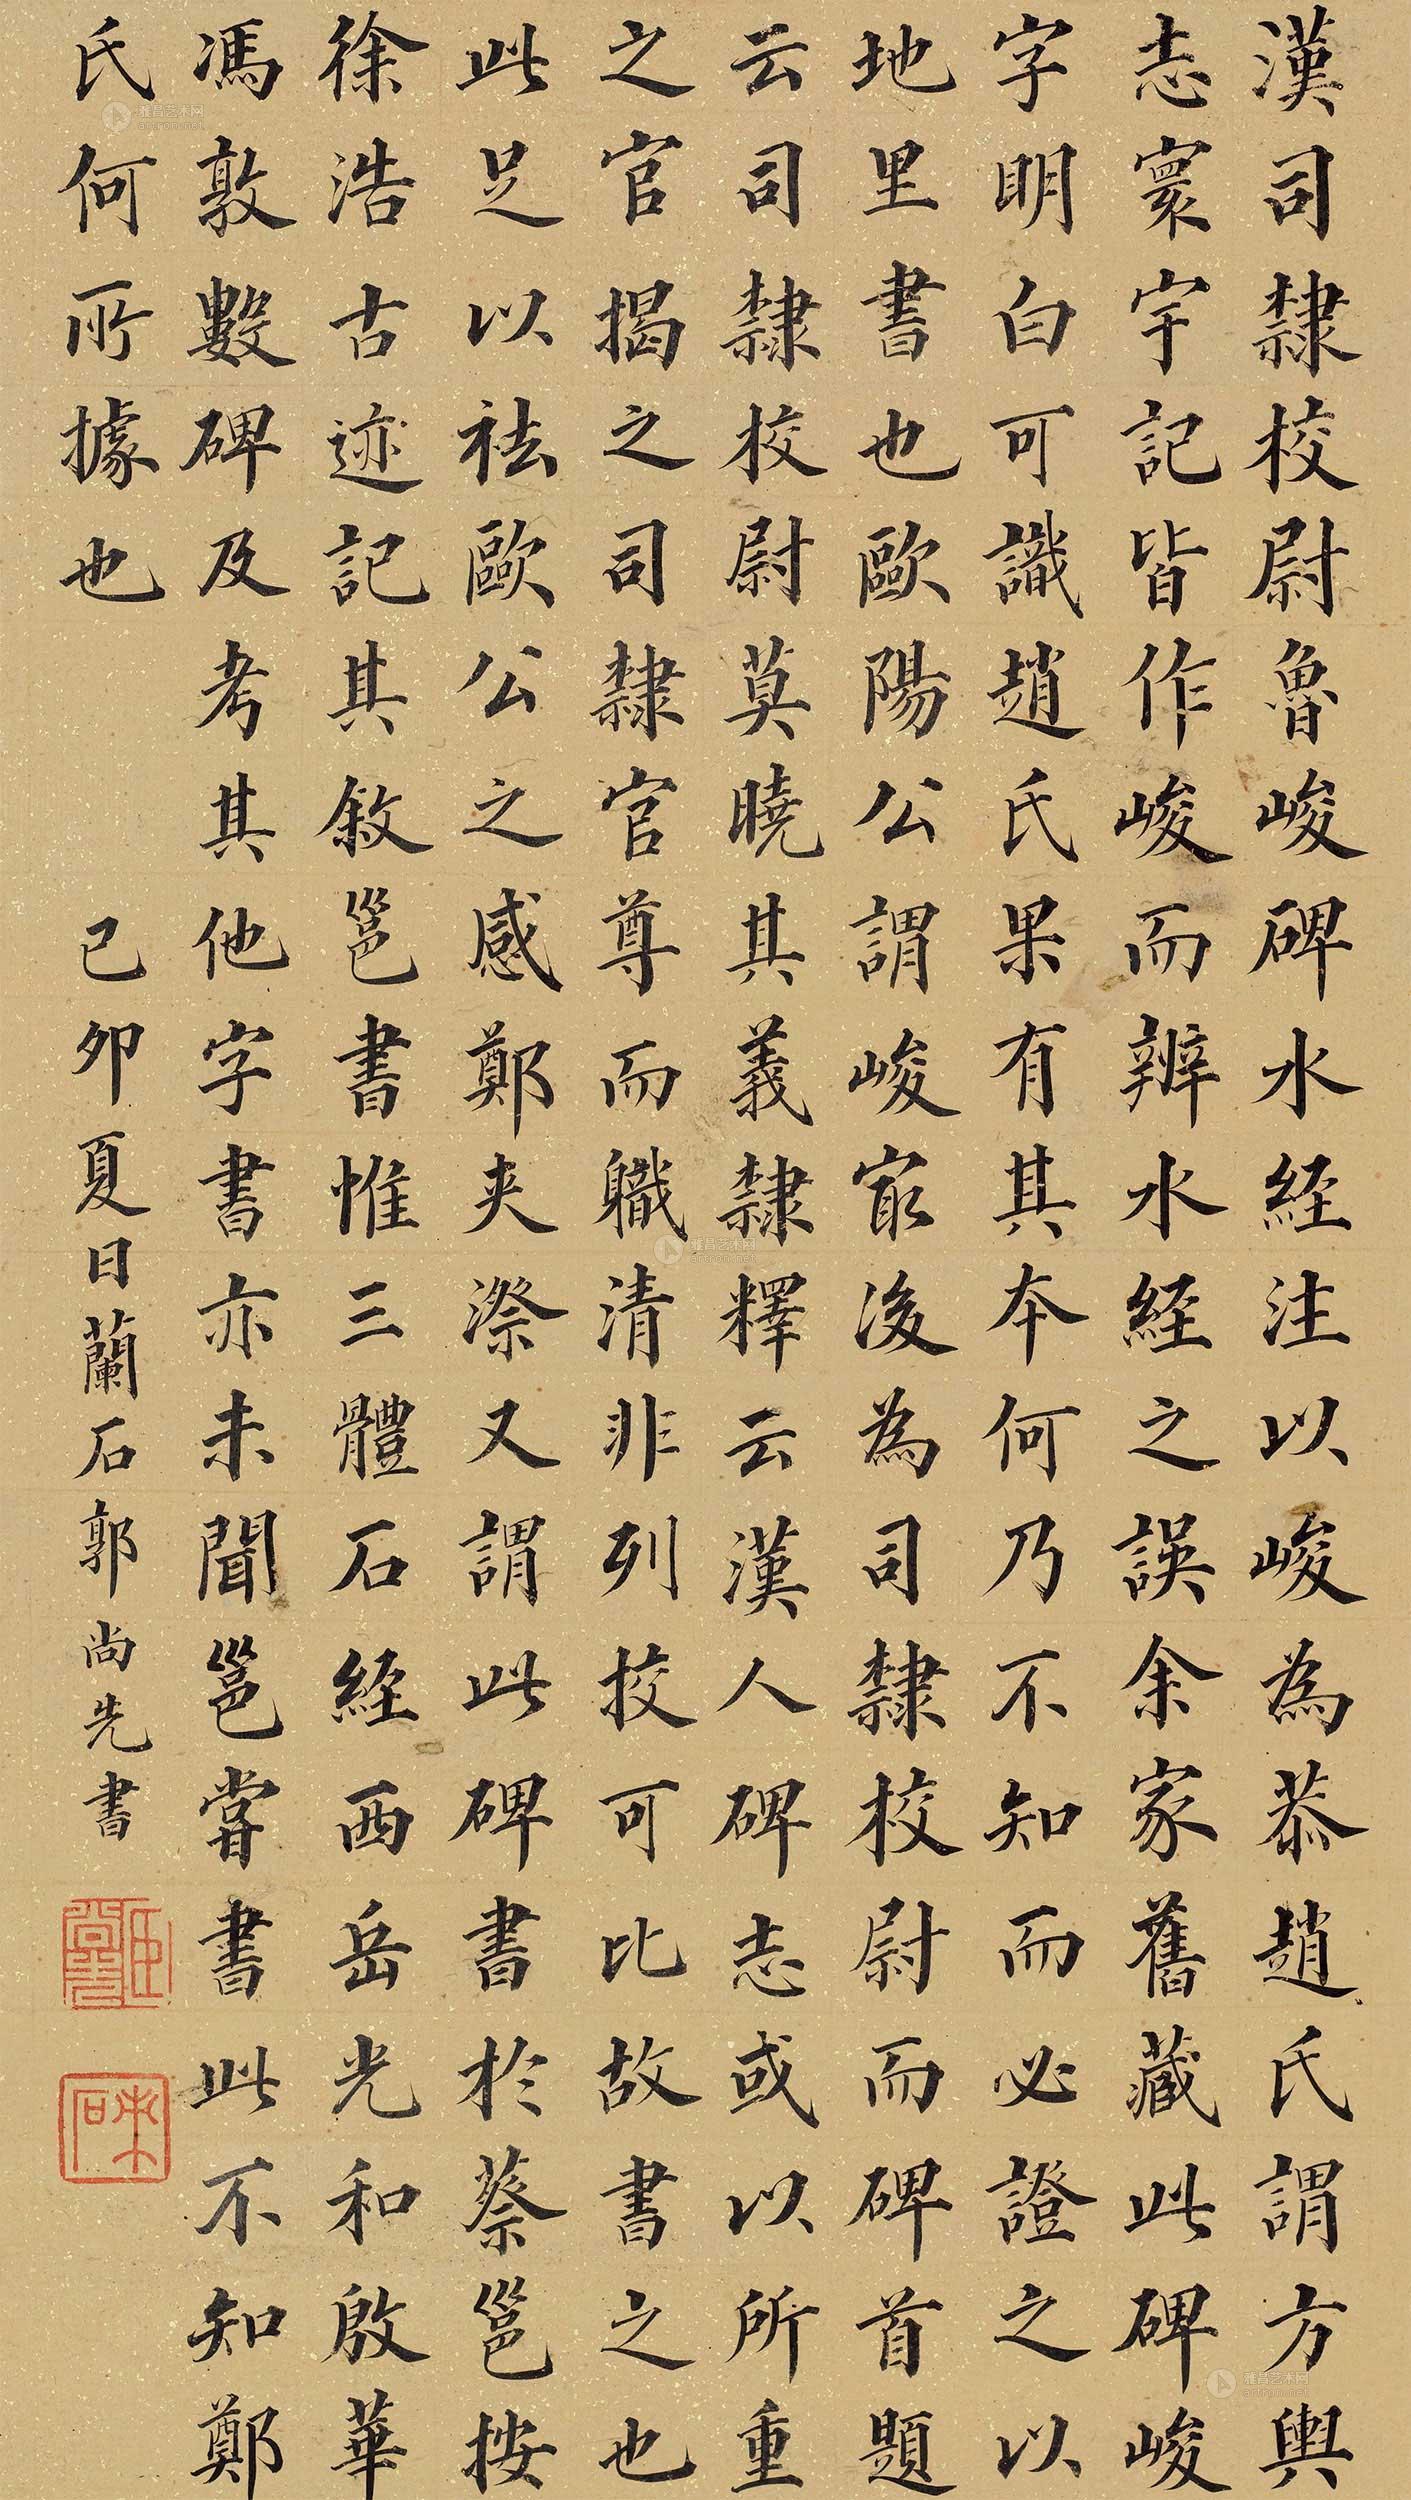 漢司隸校尉魯峻碑水経注以峻為恭趙氏謂方輿
志寰宇記皆作峻而辨水経之誤余家舊藏此碑峻
字明白可識趙氏果有其本何乃不知而必證之以
地里書也歐陽公謂峻㝡後為司隸校尉而碑首題
云司隸校尉莫曉其義隸釋云漢人碑志或以所重
之官揭之司隸官尊而職清非列挍可比故書之也
此足以祛歐公之惑鄭夾漈又謂此碑書於蔡邕按
徐浩古迹記其敘邕書惟三體石経西岳光和殷華
馮敦數碑及考其他字書亦未聞邕嘗書此不知鄭
氏何所據也
己卯夏日蘭石郭尚先書
雅昌艺术网
artron.net
雅昌艺术网
artron.net
雅昌艺术网
artron.net